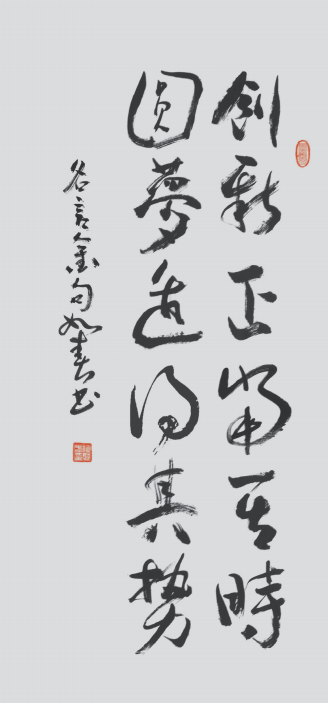 創新正當其時
圓夢適得其勢
名言金句如春書